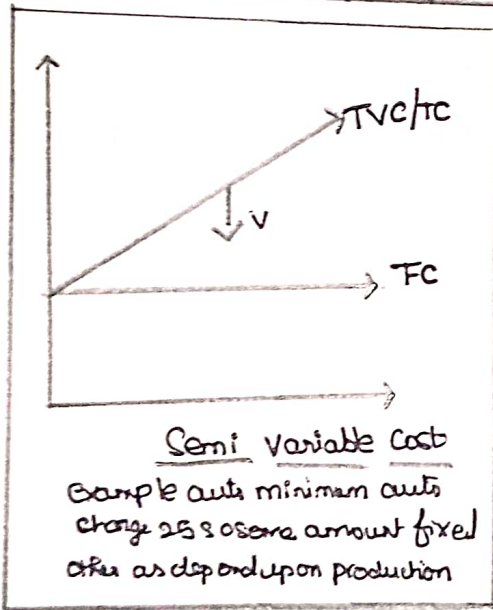 TVC/TC
V
FC
Semi Variable Cost
Example auto minimum auto
charge 25 so some amount fixed
other as depend upon production